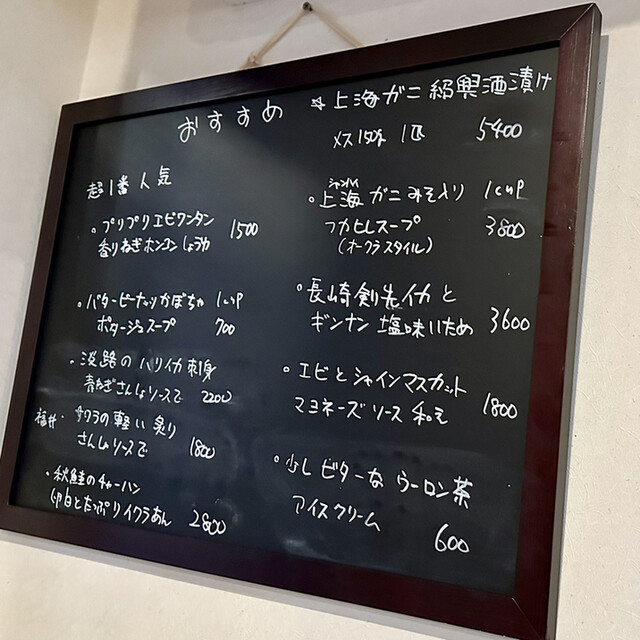 おすすめ
超1番人気
・プリプリエビワンタン
香りねぎホンコンしょうゆ 1500
・バターピーナッツかぼちゃ 1cup
ポタージュスープ 700
・淡路のハリイカ刺身
青ねぎさんしょソースで 2200
福井・サワラの軽い炙り
さんしょソースで 1800
・秋鮭のチャーハン
卵白とたっぷりイクラあん 2800
☆上海ガニ紹興酒漬け
メス150g 1匹 5400
シャンハイ
・上海ガニみそ入り 1cup
フカヒレスープ 3800
(オークラスタイル)
・長崎剣先イカと
ギンナン塩味いため 3600
・エビとシャインマスカット
マヨネーズソース和え 1800
・少しビターなウーロン茶
アイスクリーム 600